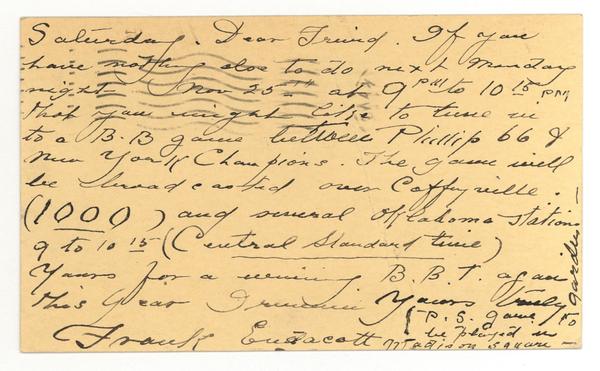 Saturday. Dear Friend. If you
have nothing else to do next Monday
night Nov 25th at 9 PM to 10 15 PM
that you might like to tune in
to a B.B game between Phillip 66 &
New York Champions. The game will
be broadcasted over Coffeyville.
(1000) and several Oklahoma stations
9 to 10 15 (Central Standard time)
Yours for a winning B.B.T. again
this year I remain Yours truly
Frank Endacott
P.S. Game to
be played in
Madison Square -
Garden -